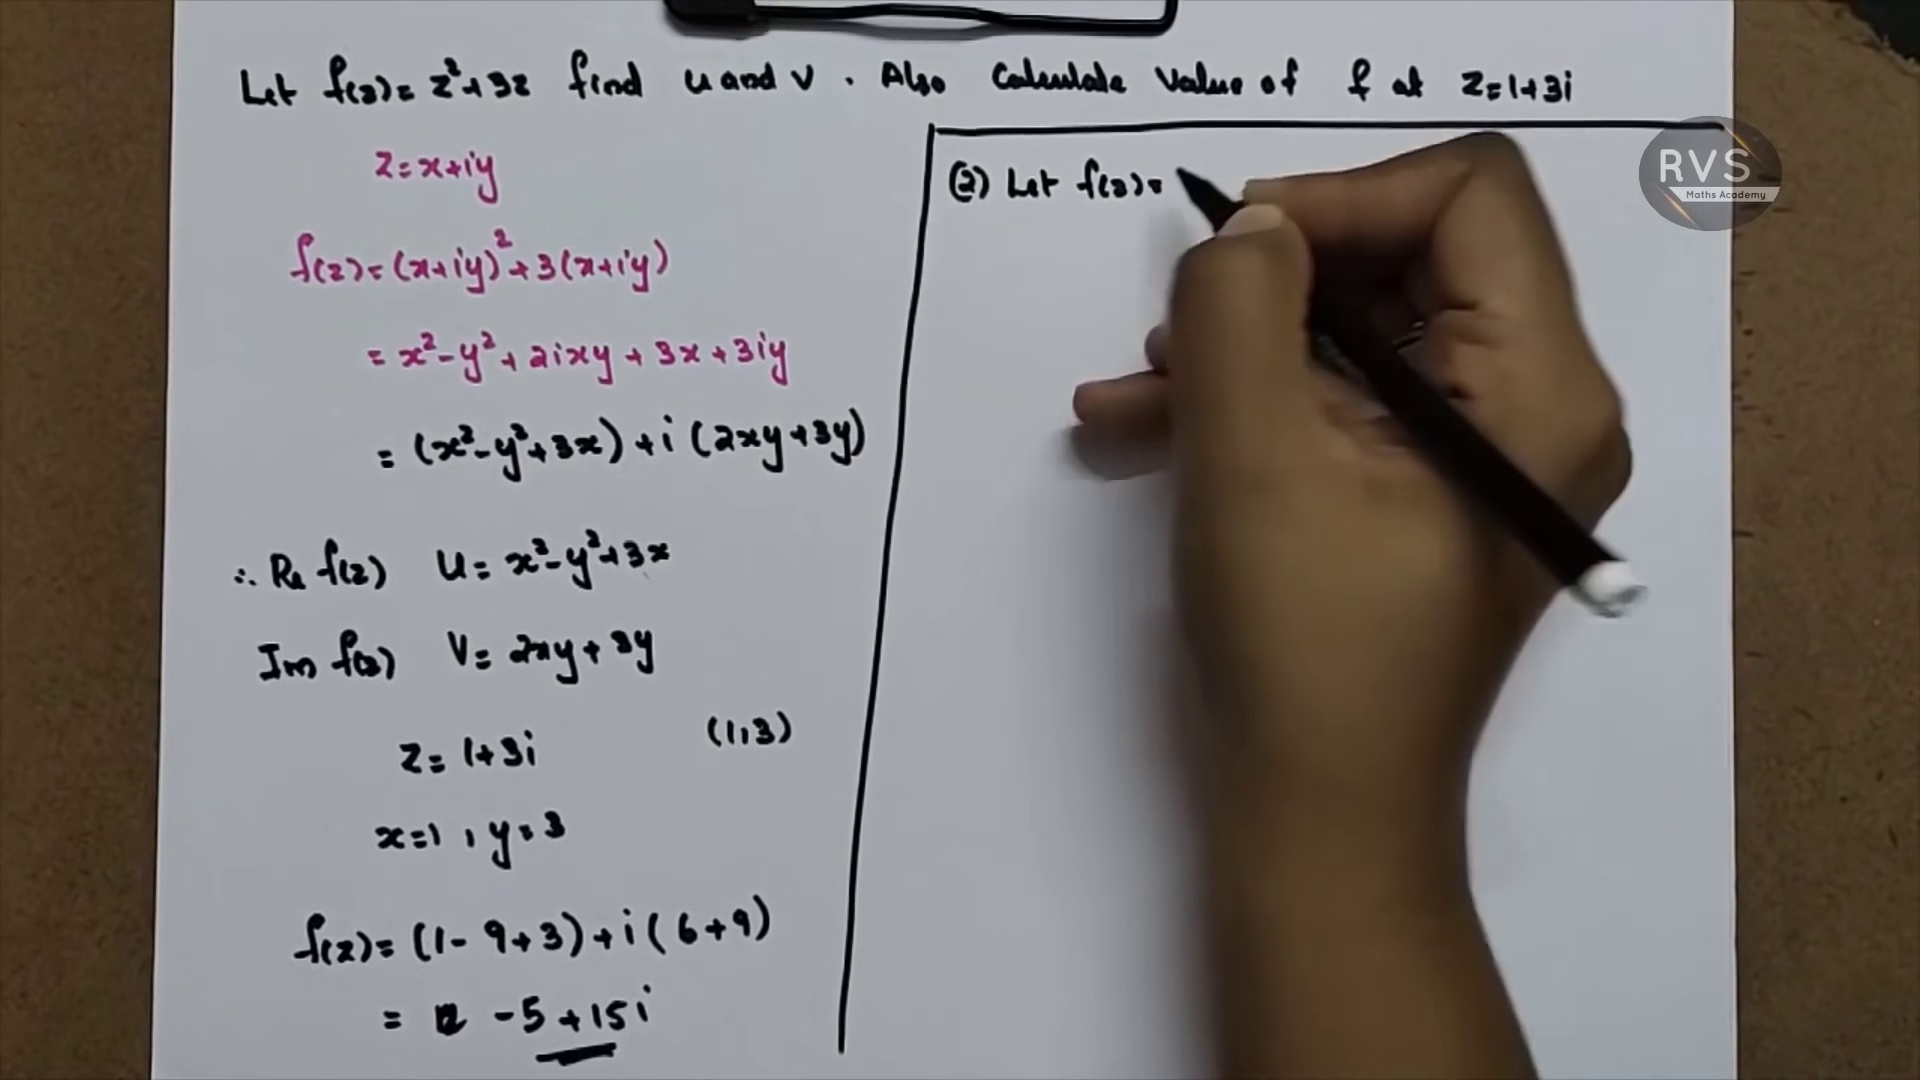 Let f(z) = z²+3z find u and v. Also Calculate Value of f at z=1+3i
z=x+iy
f(z)=(x+iy)²+3(x+iy)
= x²-y²+2ixy+3x+3iy
= (x²-y²+3x)+i(2xy+3y)
∴ Re f(z) u= x²-y²+3x
Im f(z) V= 2xy+3y
z= 1+3i (1,3)
x=1, y=3
f(z)= (1-9+3)+i(6+9)
= -5+15i
(2) Let f(z)=
RVS
Maths Academy